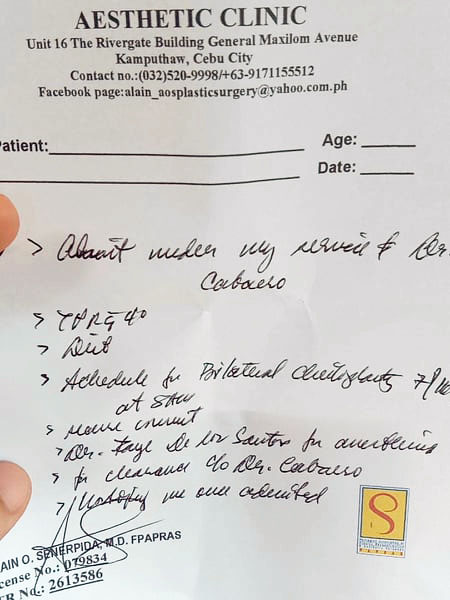 AESTHETIC CLINIC
Unit 16 The Rivergate Building General Maxilom Avenue
Kamputhaw, Cebu City
Contact no.:(032)520-9998/+63-9171155512
Facebook page:alain_aosplasticsurgery@yahoo.com.ph
Patient: Age:
Date:
> Admit under my service & Dr.
Cabaero
> TPR q 4°
> Diet
> Schedule for Bilateral 7/
at 8AM
> secure consent
> Dr. Faye De los Santos for anesthesia
> for clearance c/o Dr. Cabaero
> me once admitted
AIN O. SENERPIDA, M.D. FPAPRAS
cense No.: 079834
R No.: 2613586
S